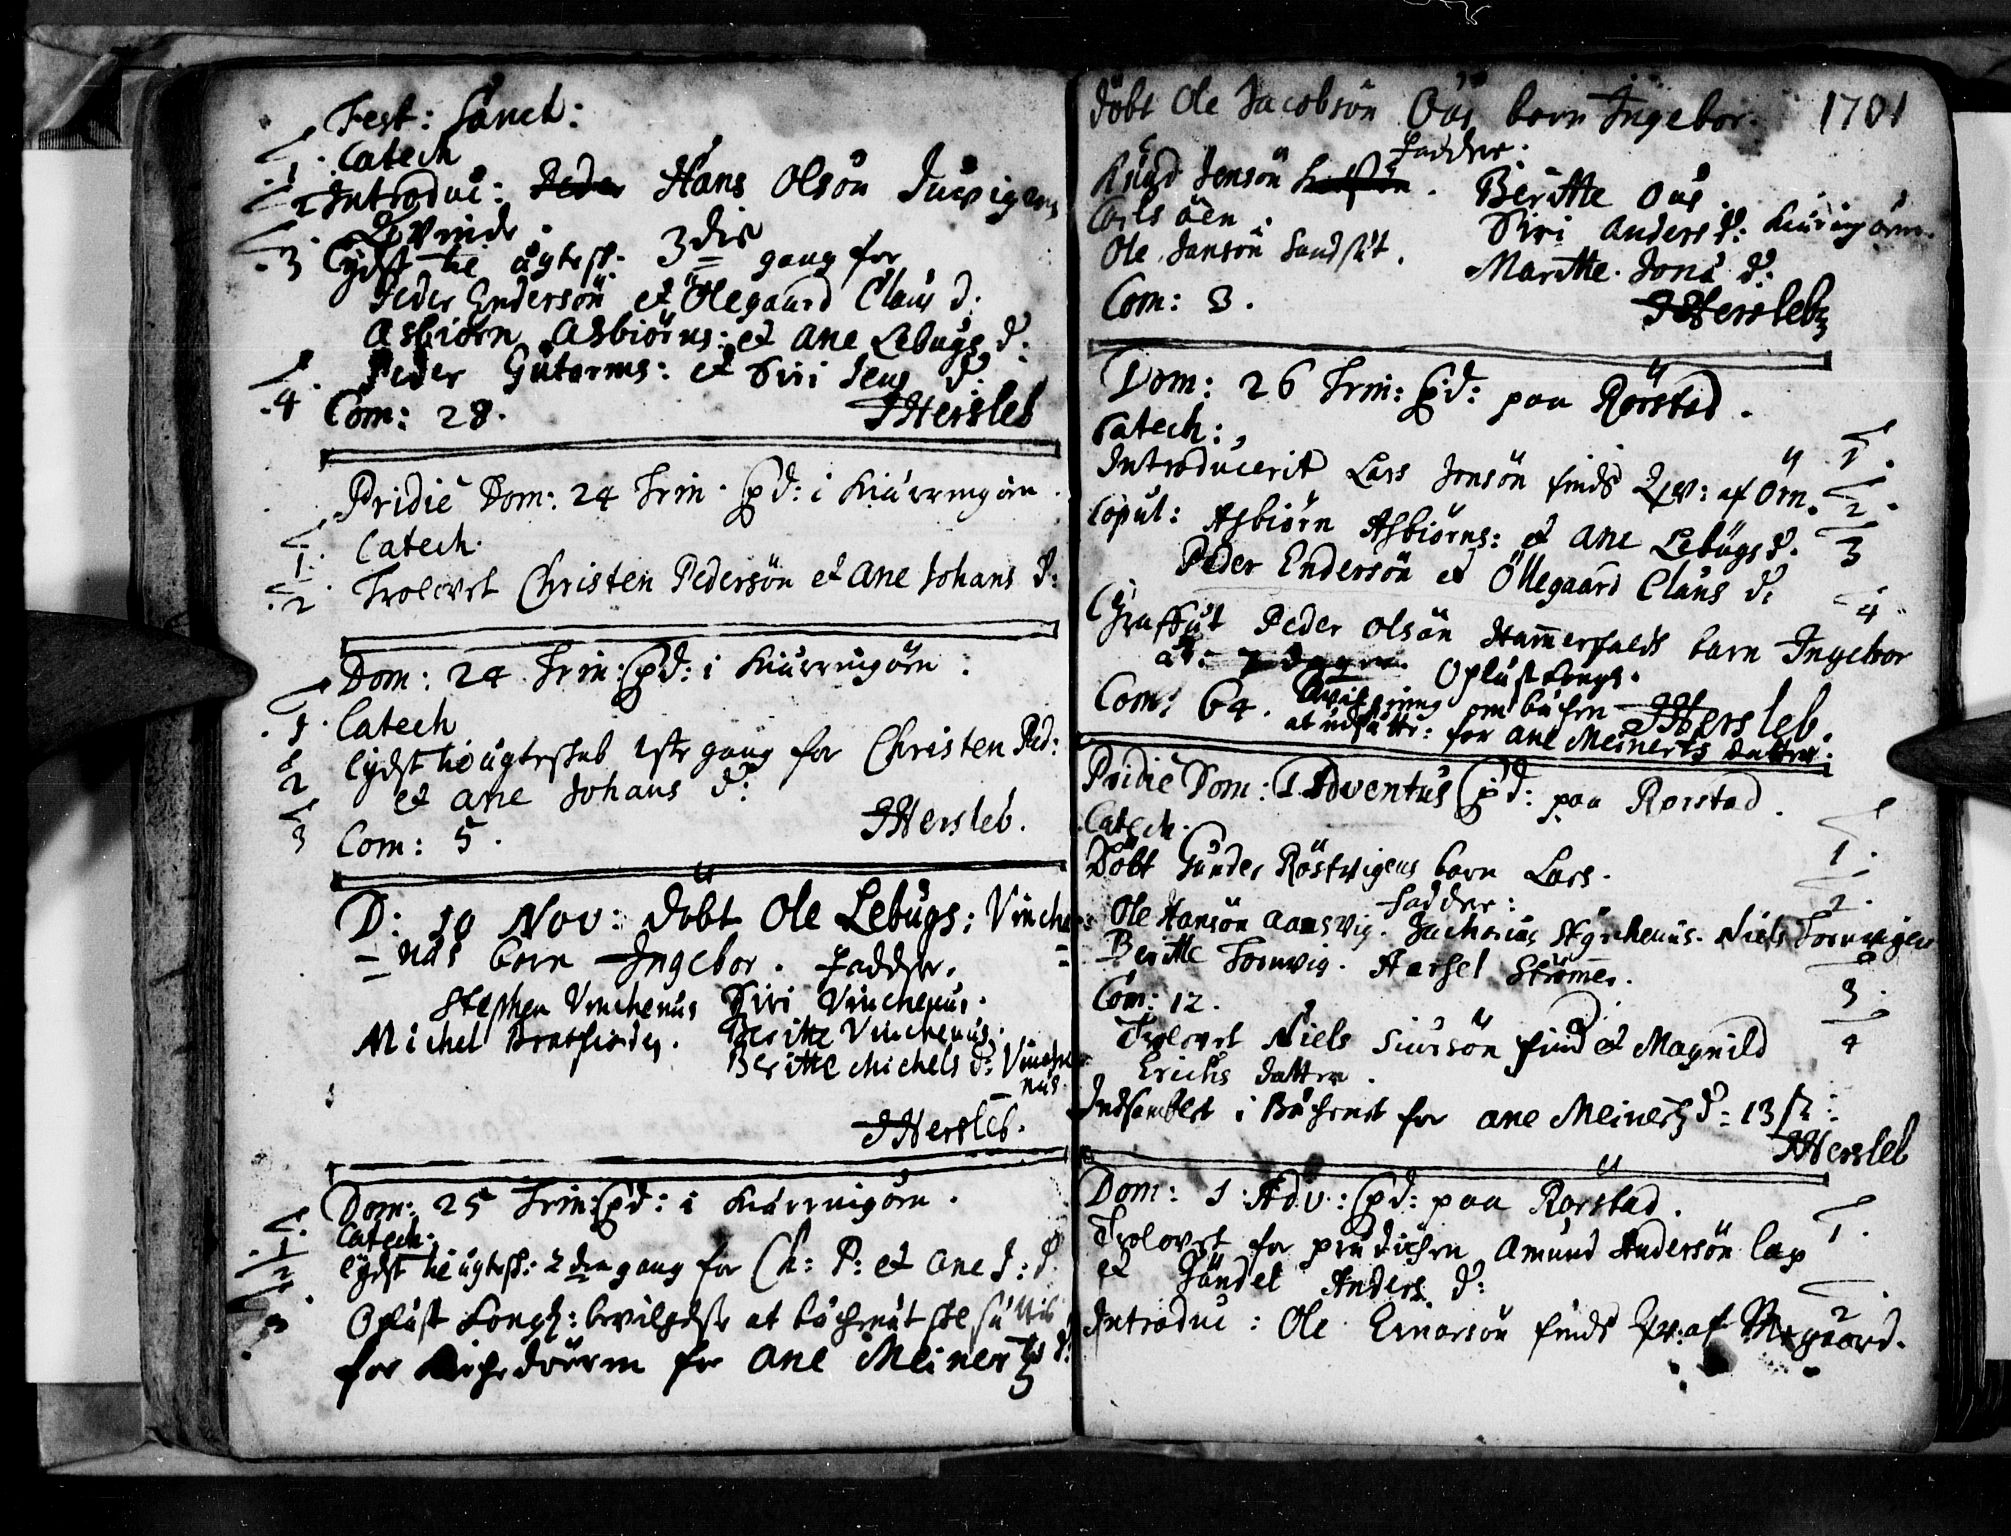 Fest: Sanct:
1. Catech
2 Introduc: Peder Hans Olsön
Qvinde.
3 Lyst til ægtesk: 3die gang for
Peder Endersön et Ölegaard Claus d:
Asbiörn Asbiörns: et Ane Lebugs d:
Peder Gutorms: et Siri Jens d:
4 Com: 28. JHersleb
Pridie Dom: 24 Trin: Pd: i Kiærringöen.
1. Catech.
2 Trolovet Christen Pedersön et Ane Johans d:
Dom: 24 Trin: Pd: i Kiærringöen:
1. Catech
2 Lyst til ægteskab 1ste gang for Christen Ped:
et Ane Johans d:
3 Com: 5. JHersleb.
D: 10 Nov: döbt Ole Lebugs: Vinche
næs born Ingebor. Faddere.
Stephen Vinchenæs Siri Vinchenæs.
Michel Bratfiorden. Beritte Vinchenæs.
Beritte Michels d: Vinche
næs
JHersleb.
Dom: 25 Trin: Pd: i Kiærringöen.
1 Catech:
2 Lyst til ægtesk: 2den gang for Ch: P: et Ane J: d.
3 Oplæst Longh: bevilgelse at bächenet
for Kirchedörren for Ane Meinertz d:
döbt Ole Jacobsön Oás born Ingebor. 1701
Faddere:
Knud Jensön. Beritte Oas.
Carlsöen. Siri Anders d: Kiæringöen.
Ole Jensön Sandsæt. Maritte Jons d:
Com: 3. JHersleb
Dom: 26 Trin: Pd: paa Rörstad.
Catech: 1.
Introducerit Lars Jonsön finds Qv: af Örn. 2.
Copul: Asbiörn Asbiörns: et Ane Lebugs d. 3
Peder Endersön et Öllegaard Claus d:
Graffæst Peder Olsön Hammerfalds barn Ingebor 4
æt: 7 dage. Oplæst Longh.
Com: 64. Aviisning om bächen JHersleb.
at udsætte: for Ane Meinerts datter:
Pridie Dom: 1 Adventus Pd: paa Rörstad.
Catech. 1.
Döbt Gunder Röstvigens born Lars. 2.
Faddere:
Ole Hansön Aansvig. Zacharias Niels Tornvigen
Beritte Tornvig. Strömes.
Com: 12. 3.
Trolovet Niels Siursön find et Magnild 4
Erichs datter.
Indsamblet i Bächenet for Ane Meinertz d: 13 s:
JHersleb
Dom: 1 Adv: Pd: paa Rörstad.
Trolovet for prædichen Amund Andersön lap 1.
et Anders d:
Introduc: Ole Einarsön finds Qv: af 2.